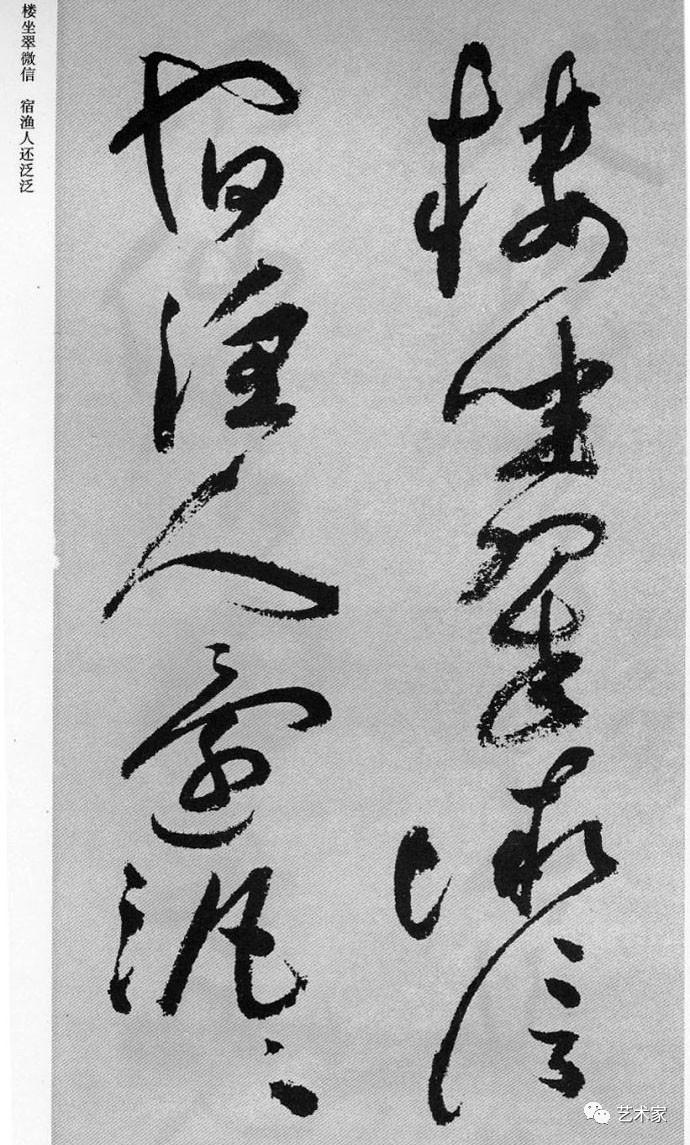 楼坐翠微信
宿渔人还泛泛
楼坐翠微信 宿渔人还泛泛
艺术家